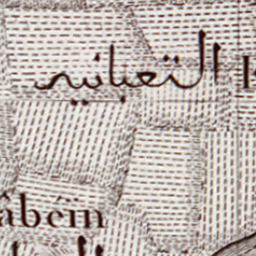 التعبانيه
âbéïn